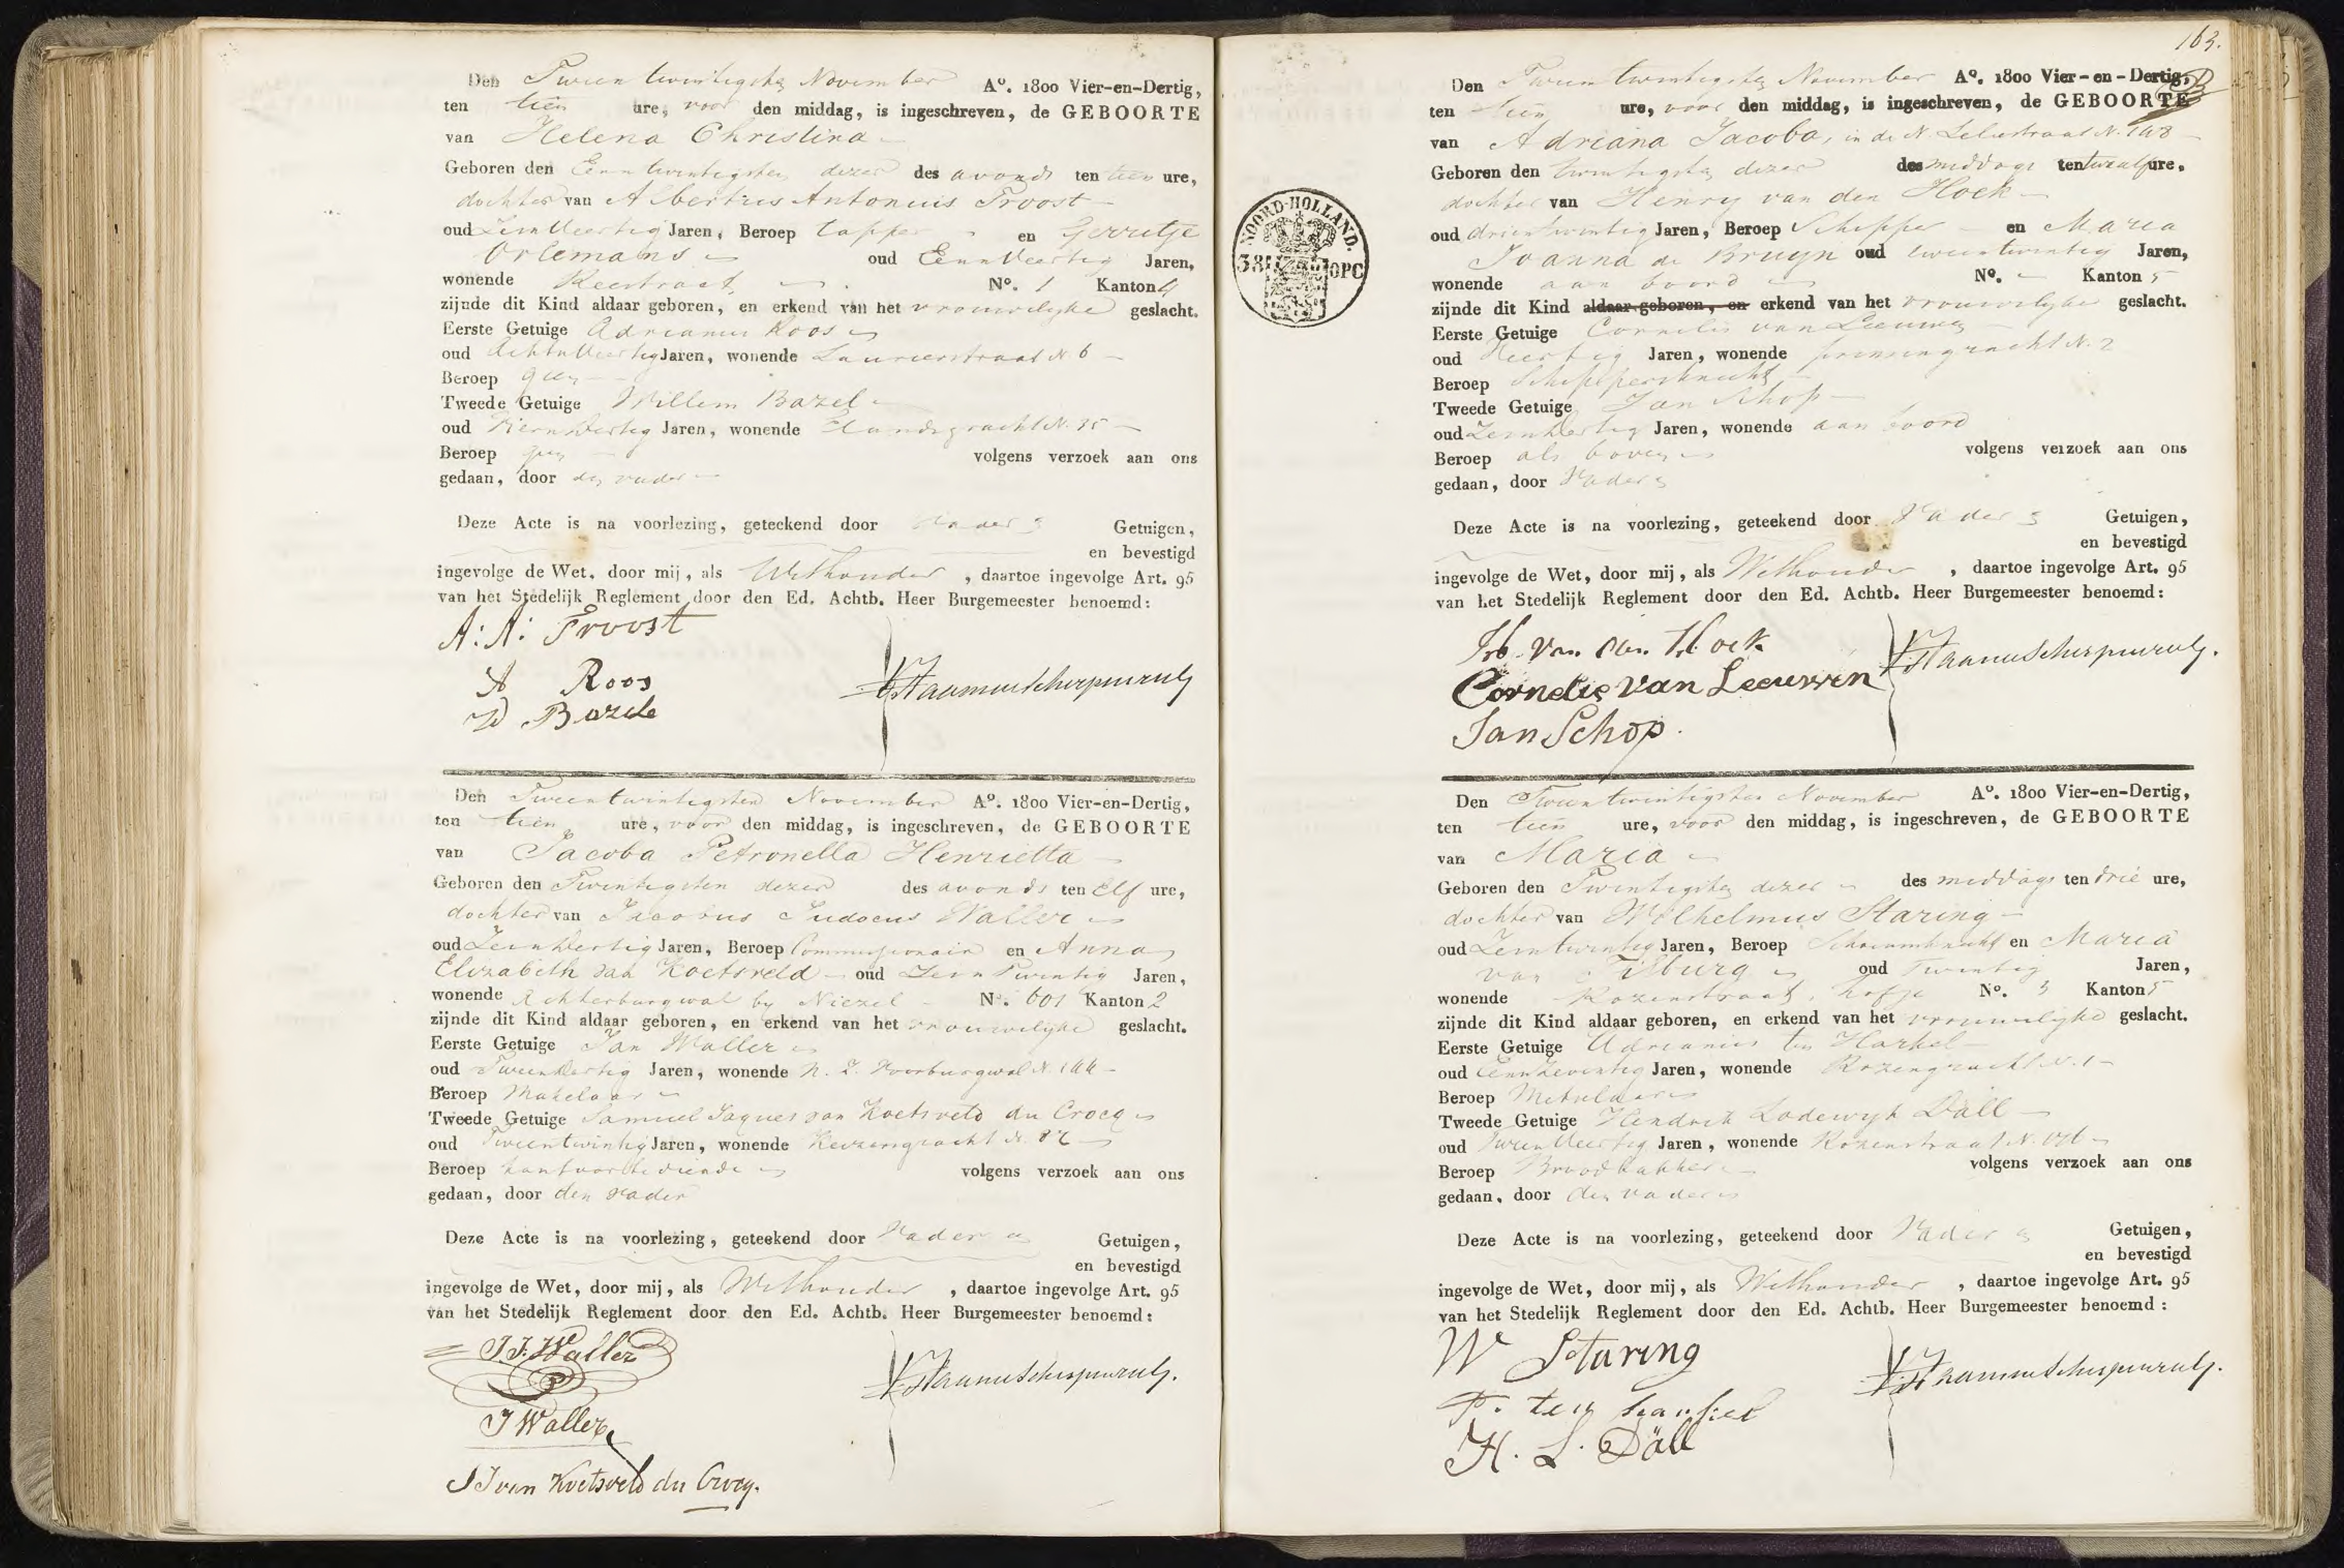 Den Tweentwintigsten November A°. 1800 Vier-en-Dertig,
ten tien ure, voor den middag, is ingeschreven, de GEBOORTE
van Helena Christina
Geboren den Eenentwintigsten dezer des avonds ten tien ure,
dochter van Albertus Antonius Troost
oud Jaren, Beroep tapper en Gerretje
Orlemans oud Jaren,
wonende Reestraat N°. 1 Kanton 4
zijnde dit Kind aldaar geboren, en erkend van het vrouwelijke geslacht.
Eerste Getuige Adrianus Roos
oud Jaren, wonende Laurierstraat N. 6
Beroep geen
Tweede Getuige Willem Bazel
oud Jaren, wonende Elandsgracht N. 35
Beroep geen volgens verzoek aan ons
gedaan, door den vader
Deze Acte is na voorlezing, geteekend door Vader en Getuigen,
en bevestigd
ingevolge de Wet, door mij, als Wethouder, daartoe ingevolge Art. 95
van het Stedelijk Reglement door den Ed. Achtb. Heer Burgemeester benoemd:
A: A: Troost
A Roos
W Bazele
Den Tweentwintigsten November A°. 1800 Vier-en-Dertig,
ten tien ure, voor den middag, is ingeschreven, de GEBOORTE
van Jacoba Petronella Henrietta
Geboren den Twintigsten dezer des avonds ten Elf ure,
dochter van Jacobus Judocus Waller
oud Jaren, Beroep Commissionair en Anna
Elizabeth van Koetsveld oud Jaren,
wonende Achterburgwal by Niezel N°. 601 Kanton 2
zijnde dit Kind aldaar geboren, en erkend van het vrouwelijke geslacht.
Eerste Getuige Jan Waller
oud Tweendertig Jaren, wonende N. Z. Voorburgwal N. 144
Beroep Makelaar
Tweede Getuige Samuel Jaques van Koetsveld du Crocq
oud Tweentwintig Jaren, wonende Keizersgracht N.
Beroep kantoorbediende volgens verzoek aan ons
gedaan, door den vader
Deze Acte is na voorlezing, geteekend door Vader en Getuigen,
en bevestigd
ingevolge de Wet, door mij, als Wethouder, daartoe ingevolge Art. 95
van het Stedelijk Reglement door den Ed. Achtb. Heer Burgemeester benoemd:
J. J. Waller
J Waller
S J van Koetsveld du Crocq.
163.
Den Tweentwintigsten November A°. 1800 Vier-en-Dertig,
ten tien ure, voor den middag, is ingeschreven, de GEBOORTE
van Adriana Jacoba, in de N. Leliestraat N. 148
Geboren den twintigsten dezer des middags ten twaalf ure,
dochter van Henry van den Hoek
oud drientwintig Jaren, Beroep Schipper en Maria
Joanna de Bruyn oud tweentwintig Jaren,
wonende aan boord N°. Kanton 5
zijnde dit Kind aldaar geboren, en erkend van het vrouwelyke geslacht.
Eerste Getuige Cornelis van Leeuwen
oud Jaren, wonende prinsengracht N. 2
Beroep Schippersknecht
Tweede Getuige Jan Schop
oud Jaren, wonende aan boord
Beroep als boven volgens verzoek aan ons
gedaan, door Vader
Deze Acte is na voorlezing, geteekend door Vader en Getuigen,
en bevestigd
ingevolge de Wet, door mij, als Wethouder, daartoe ingevolge Art. 95
van het Stedelijk Reglement door den Ed. Achtb. Heer Burgemeester benoemd:
van den Hoek
Cornelis van Leeuwen
Jan Schop.
NOORD-HOLLAND.
38 OPC
Den Tweentwintigsten November A°. 1800 Vier-en-Dertig,
ten tien ure, voor den middag, is ingeschreven, de GEBOORTE
van Maria
Geboren den Twintigsten dezer des middags ten drie ure,
dochter van Wilhelmus Staring
oud Jaren, Beroep en Maria
van Tilburg oud Twintig Jaren,
wonende Rozenstraat, hofje N°. 3 Kanton 5
zijnde dit Kind aldaar geboren, en erkend van het vrouwelyke geslacht.
Eerste Getuige Adrianus ten Harkel
oud Jaren, wonende Rozengracht N. 1
Beroep Metselaar
Tweede Getuige Hendrik Lodewyk Däll
oud Jaren, wonende Rozenstraat N.
Beroep Broodbakker volgens verzoek aan ons
gedaan, door den vader
Deze Acte is na voorlezing, geteekend door Vader en Getuigen,
en bevestigd
ingevolge de Wet, door mij, als Wethouder, daartoe ingevolge Art. 95
van het Stedelijk Reglement door den Ed. Achtb. Heer Burgemeester benoemd:
W Staring
ten harkel
H. L. Däll